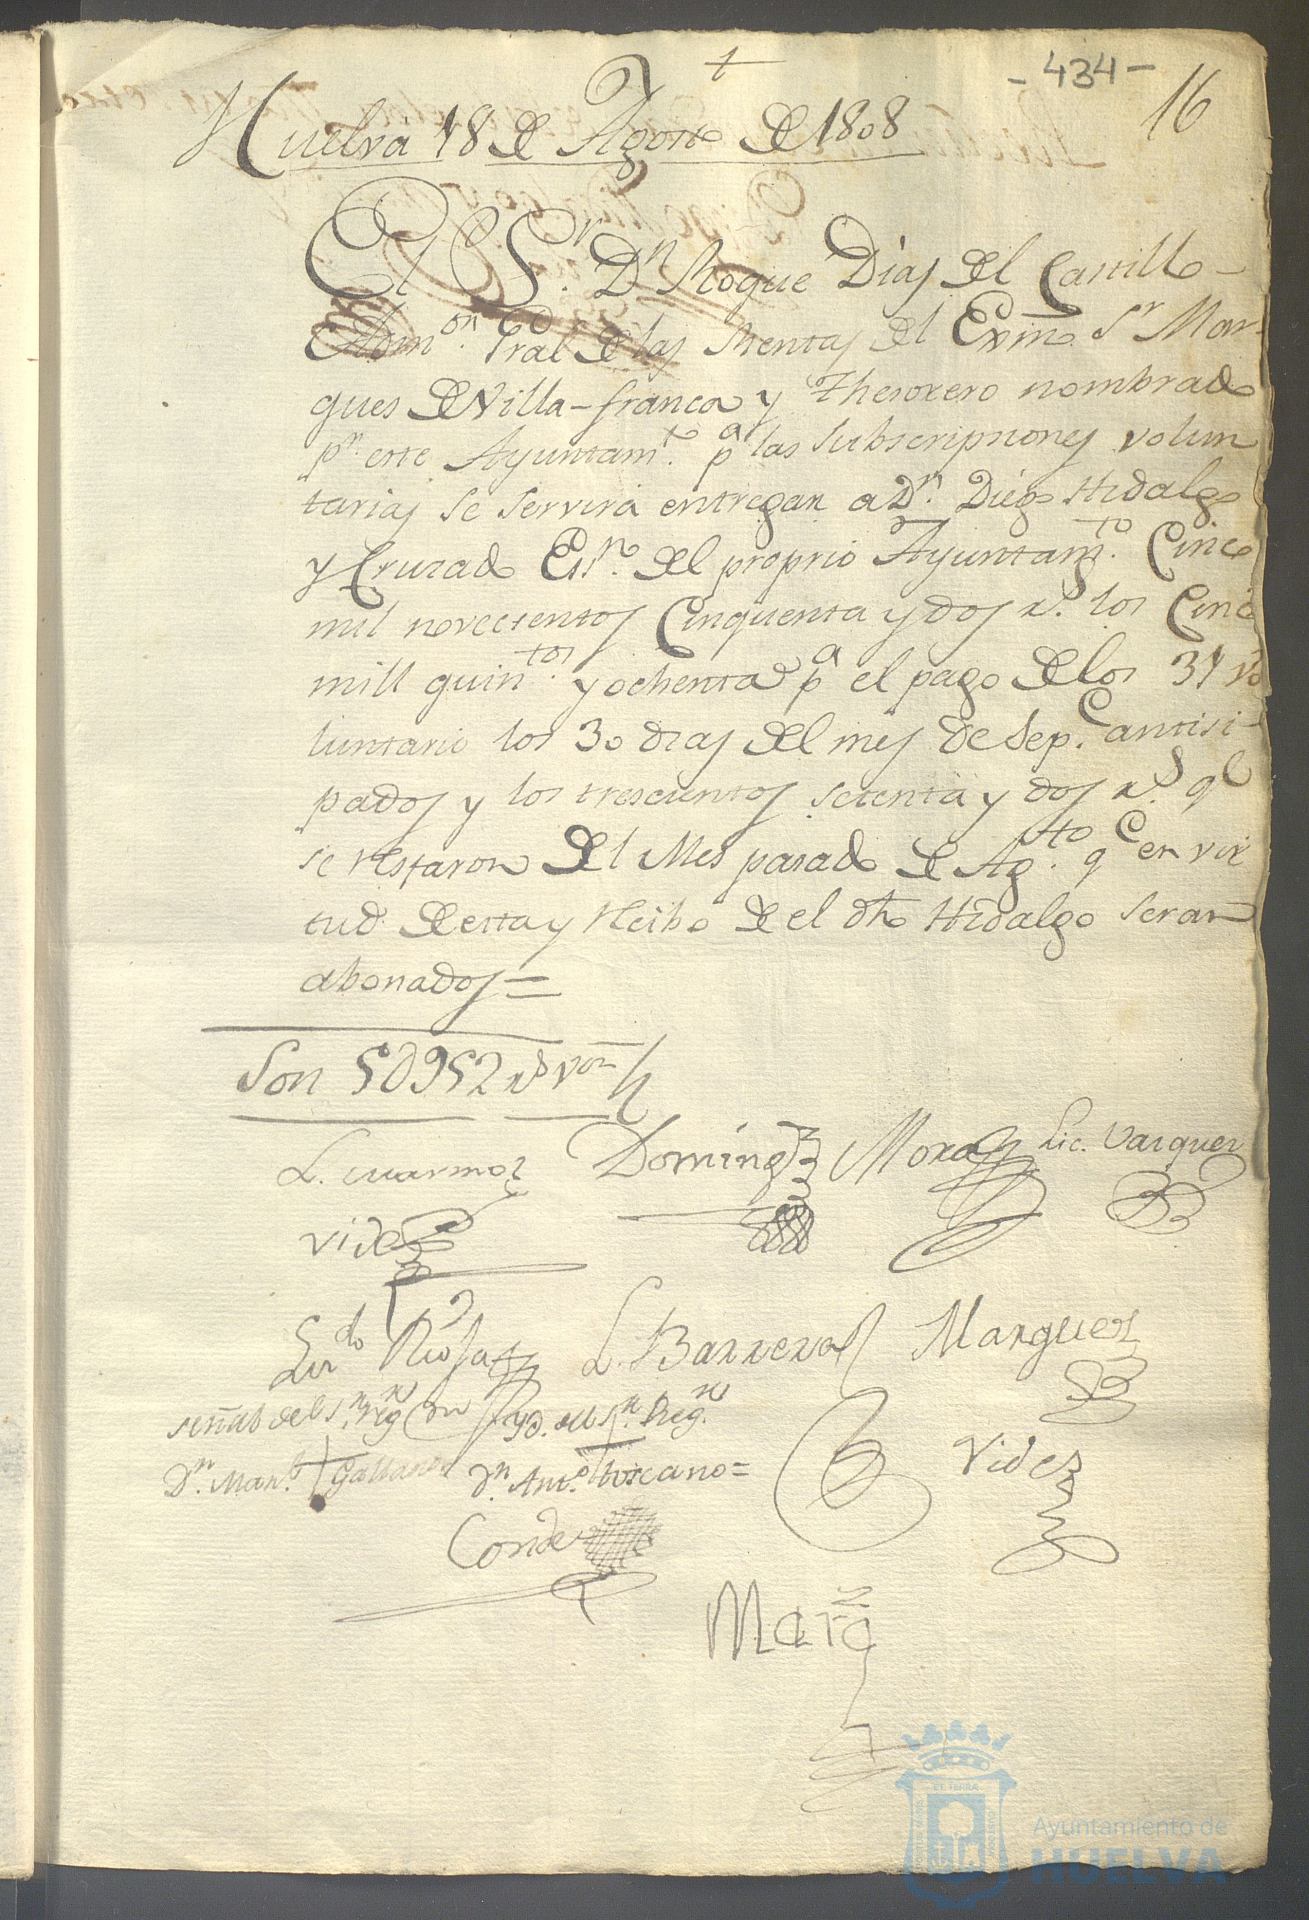 - 434 -
16
Huelva 18 de Agosto de 1808
El Sr. Dn Roque Dias del Castillo
Admon. Gral de las Rentas del Exmo. Sr Mar-
ques de Villa-franca y Thesorero nombrado
pr. este Ayuntamto. pa las subscripciones volun
tarias se servirá entregar a Dn. Diego Hidalgo
y Cruzado Essno. del proprio Ayuntamto. Cinco
mil novecientos Cinquenta y dos rs. los Cinco
mill quintos. y ochenta pa el pago de los 31 vo
luntario los 30 dias del mes de Sepe. antisi-
pados y los trescientos setenta y dos rs. qe
se restaron del Mes pasado de Agto. qe en vir
tud. de esta y Recibo de el dho Hidalgo seran
abonados =
Son 5∂952 rs von
L. Cuarmoz
Domingz
Mora
Lic. Vazquez
Videz
Licdo Rioja
L. Barrera
Marquez
señal del Sr. Regn
yd. del Sr. Regn.
Dn. Manl. Galland
dn. Anto. Toscano =
Videz
Conde
Mara
Ayuntamiento de
HUELVA